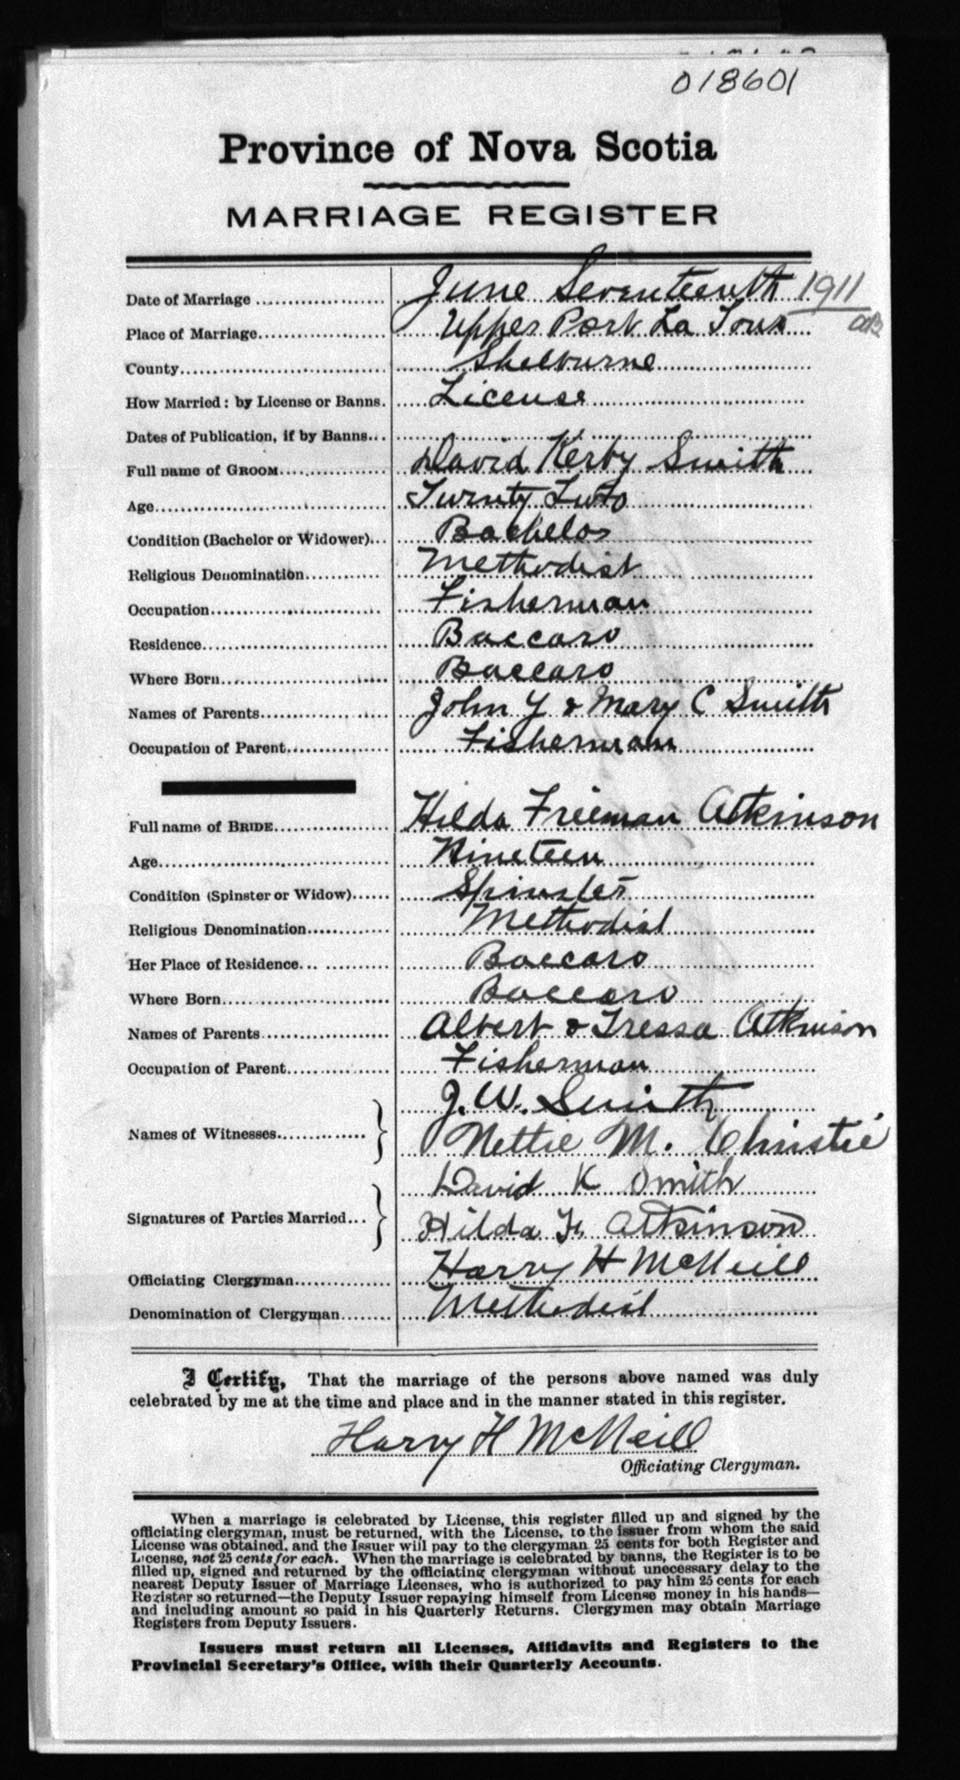 018601
Province of Nova Scotia
MARRIAGE REGISTER
Date of Marriage ... June Seventeenth 1911
Place of Marriage ... Upper Port La Tour
County ... Shelburne
How Married: by License or Banns. License
Dates of Publication, if by Banns...
Full name of GROOM ... David Kerby Smith
Age ... Twenty Two
Condition (Bachelor or Widower)... Bachelor
Religious Denomination ... Methodist
Occupation ... Fisherman
Residence ... Baccaro
Where Born ... Baccaro
Names of Parents ... John Y & Mary C Smith
Occupation of Parent ... Fisherman
Full name of BRIDE ... Hilda Freeman Atkinson
Age ... Nineteen
Condition (Spinster or Widow) ... Spinster
Religious Denomination ... Methodist
Her Place of Residence ... Baccaro
Where Born ... Baccaro
Names of Parents ... Albert & Tressa Atkinson
Occupation of Parent ... Fisherman
J. W. Smith
Names of Witnesses ... Nettie M. Christie
David K Smith
Signatures of Parties Married ... Hilda F. Atkinson
Officiating Clergyman ... Harry H McNeill
Denomination of Clergyman ... Methodist
I Certify, That the marriage of the persons above named was duly
celebrated by me at the time and place and in the manner stated in this register.
Harry H McNeill
Officiating Clergyman.
When a marriage is celebrated by License, this register filled up and signed by the
officiating clergyman, must be returned, with the License, to the issuer from whom the said
License was obtained, and the Issuer will pay to the clergyman 25 cents for both Register and
License, not 25 cents for each. When the marriage is celebrated by banns, the Register is to be
filled up, signed and returned by the officiating clergyman without unecessary delay to the
nearest Deputy Issuer of Marriage Licenses, who is authorized to pay him 25 cents for each
Register so returned—the Deputy Issuer repaying himself from License money in his hands—
and including amount so paid in his Quarterly Returns. Clergymen may obtain Marriage
Registers from Deputy Issuers.
Issuers must return all Licenses, Affidavits and Registers to the
Provincial Secretary's Office, with their Quarterly Accounts.